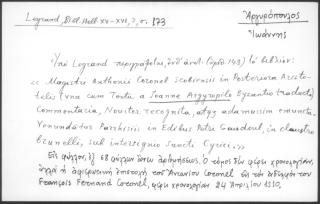 Legrand, Bibl. Hell. XV-XVI, 3, σ. 173
Ἀργυρόπουλος
Ἰωάννης
Ὑπὸ Legrand περιγράφεται, ὑπ' ἀριθ. (ἀριθ. 148) τὸ βιβλίον:
« Magistri Anthonii Coronel Secobiensis in Posteriora Aristo-
telis (una cum Textu a Joanne Argyropilo Byzantio traducto)
Commentaria, Noviter recognita, atque adamussim emuncta.
Venundatur Parrhisiis in Edibus Petri Gaudoul, in claustro
brunelli, sub intersignio Sancti Cyrici. »
Εἰς φύλλον, 68 φύλλων ἄνευ ἀριθμήσεως. Ὁ τόμος δὲν φέρει χρονολογίαν,
ἀλλὰ ἡ ἀφιερωτικὴ ἐπιστολὴ τοῦ Ἀντωνίου Coronel εἰς τὸν ἀδελφόν του
François Fernand Coronel, φέρει χρονολογίαν 24 Ἀπριλίου 1510.